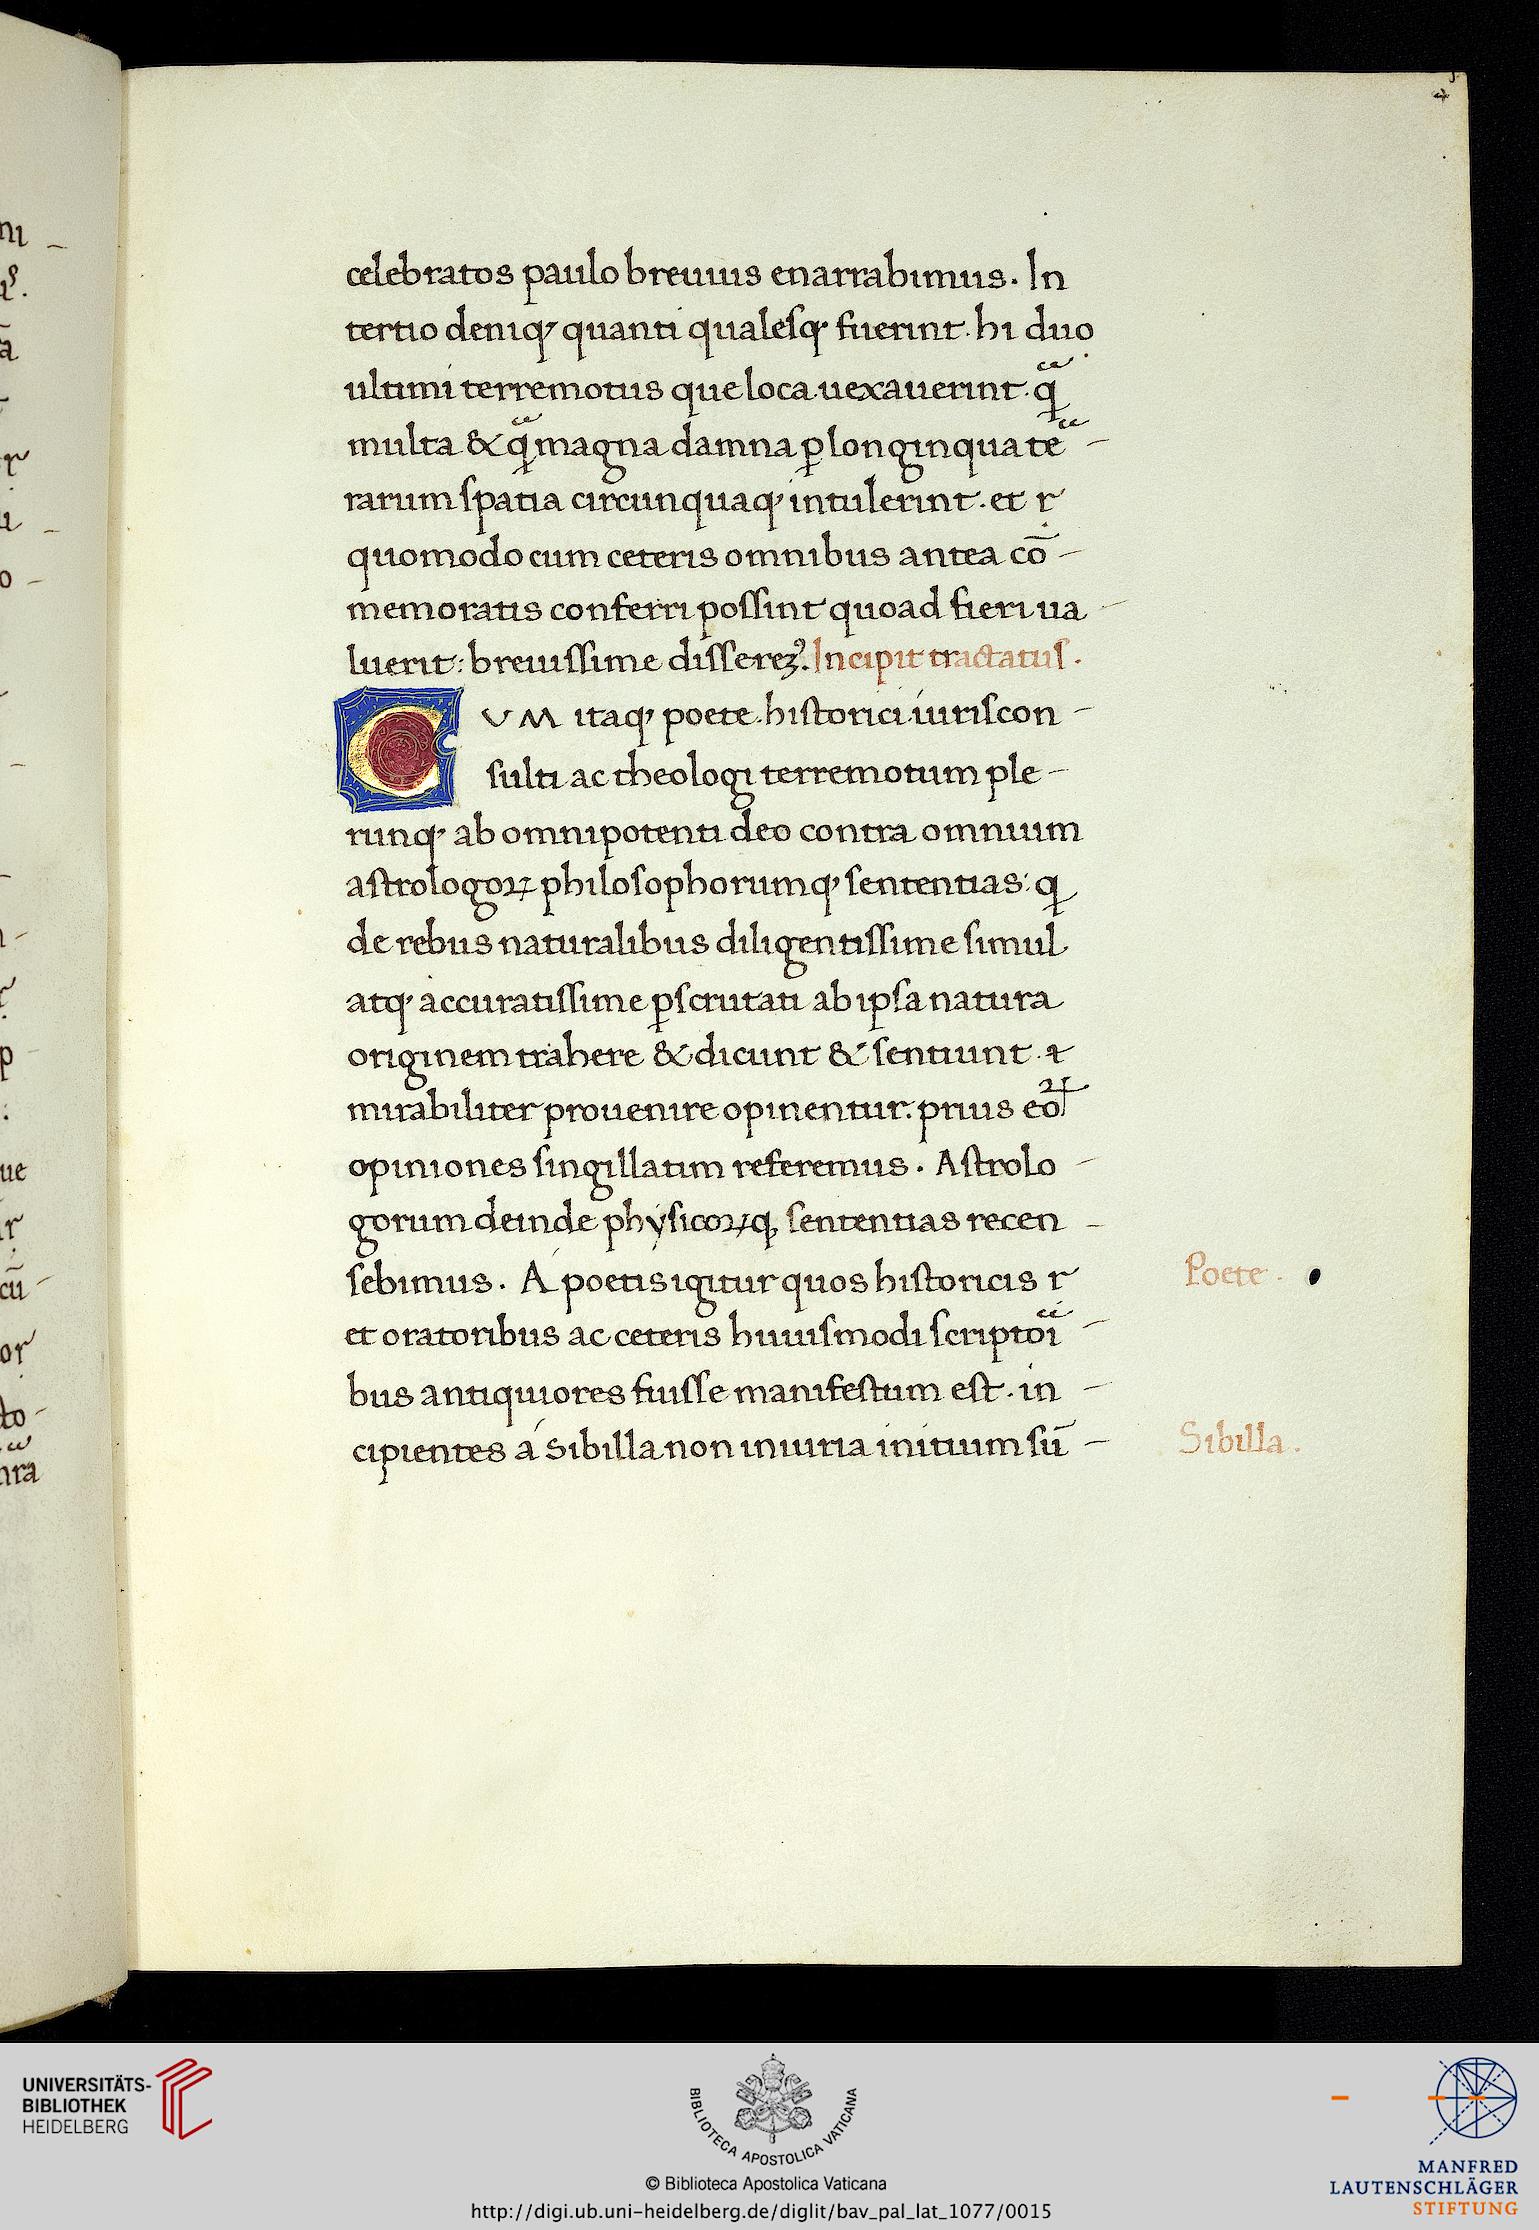 celebratos paulo breuius enarrabimus. In
tertio deniqꝫ quanti qualesqꝫ fuerint. hi duo
ultimi terremotus que loca uexauerint. q̃
multa & q̃ magna damna ꝑ longinqua te
rarum spatia circunquaqꝫ intulerint. et r
quomodo cum ceteris omnibus antea cō
memoratis conferri possint quoad fieri ua
luerit: breuissime disserem⁹. Incipit tractatus.
CVM itaqꝫ poete. historici iuriscon
sulti ac theologi terremotum ple
runqꝫ ab omnipotenti deo contra omnium
astrologoꝝ philosophorumqꝫ sententias: q
de rebus naturalibus diligentissime simul
atqꝫ accuratissime ꝑscrutati ab ipsa natura
originem trahere & dicunt & sentiunt. ⁊
mirabiliter prouenire opinentur: prius eoꝝ
opiniones singillatim referemus. Astrolo
gorum deinde physicoꝝqꝫ sententias recen
sebimus. A poetis igitur quos historicis r
et oratoribus ac ceteris huiusmodi scriptoi
bus antiquiores fuisse manifestum est. in
cipientes a Sibilla non iniuria initium sū
Poete.
Sibilla.
UNIVERSITÄTS-
BIBLIOTHEK
HEIDELBERG
BIBLIOTECA APOSTOLICA VATICANA
© Biblioteca Apostolica Vaticana
http://digi.ub.uni-heidelberg.de/diglit/bav_pal_lat_1077/0015
MANFRED
LAUTENSCHLÄGER
STIFTUNG